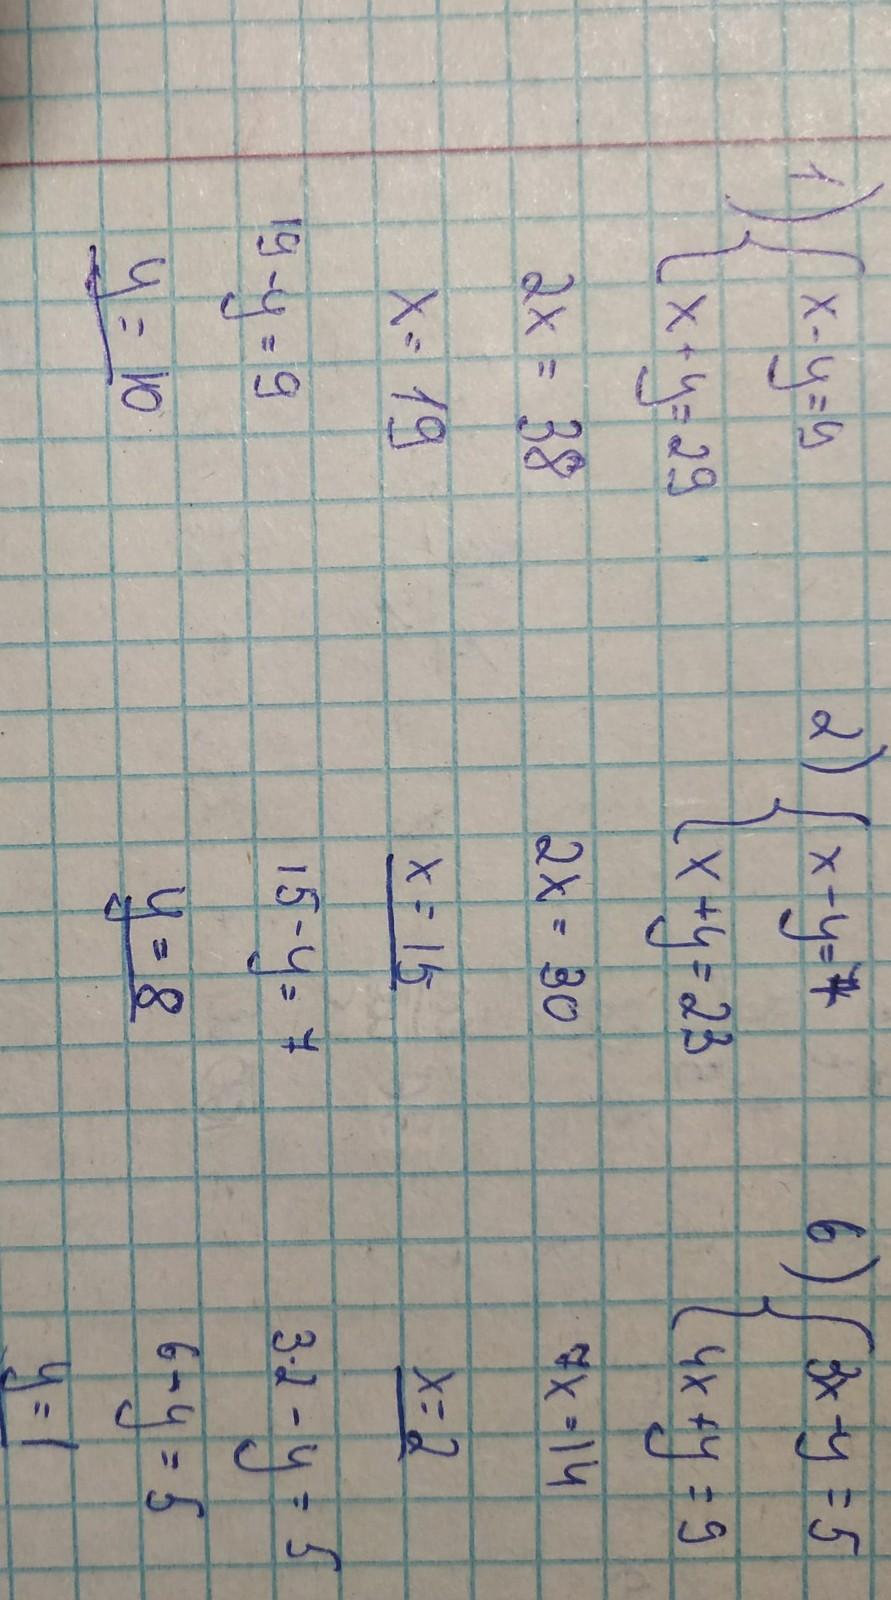 1) { x - y = 9
x + y = 29
2x = 38
x = 19
19 - y = 9
y = 10
2) { x - y = 7
x + y = 23
2x = 30
x = 15
15 - y = 7
y = 8
6) { 3x - y = 5
4x + y = 9
7x = 14
x = 2
3·2 - y = 5
6 - y = 5
y = 1